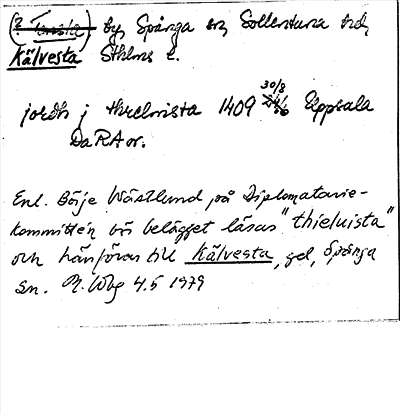 by Spånga sn Sollentuna hd,
Kälvesta Sthlms l.
jordh j thielwista 1409 30/8 Uppsala
DaRA or.
Enl. Börje Westlund på Diplomatarie-
kommittén bör belägget läsas "thieluista"
och hänföras till Kälvesta, gd, Spånga
sn. M. Wbg 4.5 1979